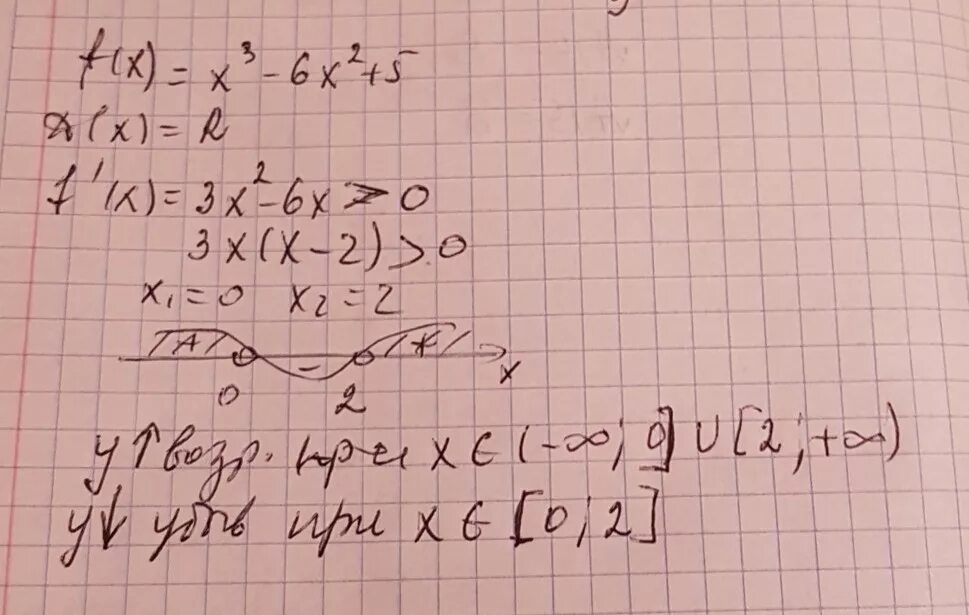 f(x) = x³ - 6x² + 5
D(x) = R
f'(x) = 3x² - 6x > 0
3x(x - 2) > 0
x₁ = 0 x₂ = 2
+ - + x
0 2
y↑ возр. при x ∈ (-∞; 0] ∪ [2; +∞)
y↓ убыв при x ∈ [0; 2]